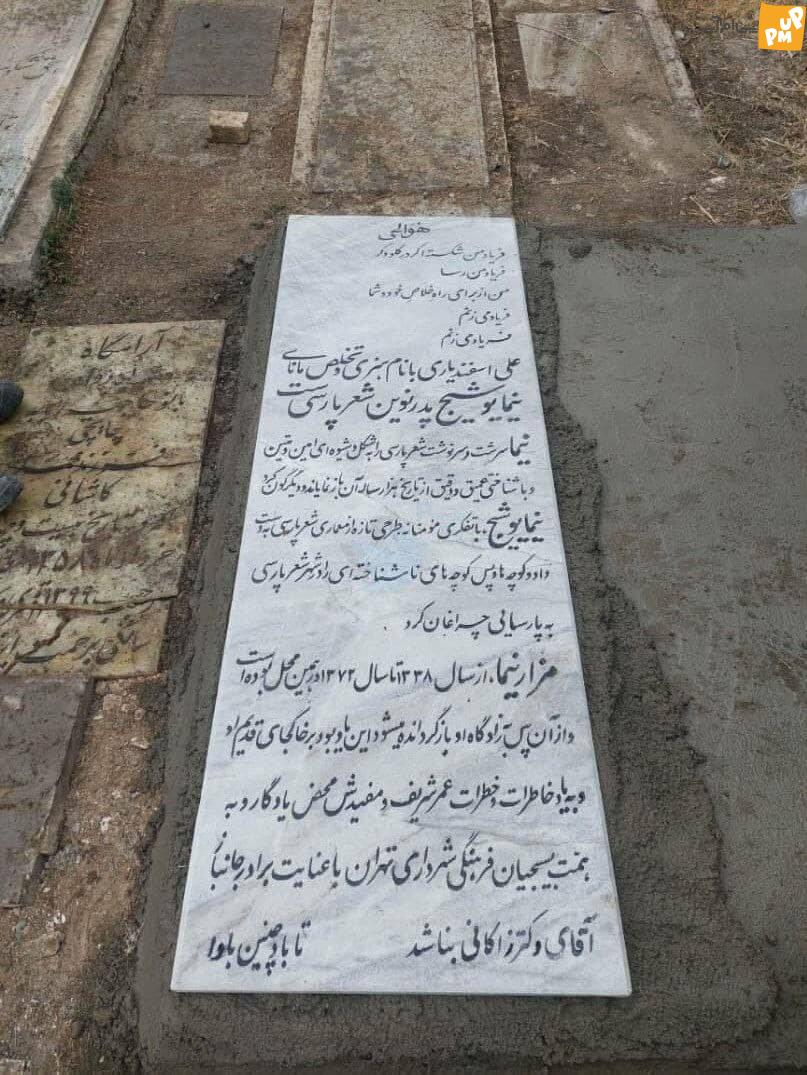 هوالحی
فریاد من شکسته اگر در گلو وگر
فریاد من رسا
من از برای راه خلاص خود و شما
فریاد می زنم
فریاد می زنم
علی اسفندیاری با نام هنری و تخلص مانای
نیما یوشیج پدر نوین شعر پارسی است
نیما سرشت و سرنوشت شعر پارسی را به شکل و شیوه ای امین و متین
و با شناختی عمیق و دقیق از تاریخ هزار ساله آن باز نمایاند و دیگرگون کرد
نیما یوشیج، با تفکری مؤمنانه طرحی تازه از معماری شعر پارسی به دست
داد و کوچه ها و پس کوچه های ناشناخته ای را در شهر شعر پارسی
به پارسایی چراغان کرد
مزار نیما، از سال ۱۳۳۸ تا سال ۱۳۷۲ در همین محل بوده است
و از آن پس به زادگاه او بازگردانده میشود این یادبود بر خاکجای قدیم او
و به یاد خاطرات و خطرات عمر شریف و مفیدش محض یادگار و به
همت بسیجیان فرهنگی شهرداری تهران با عنایت برادر جانباز
آقای دکتر زاکانی بنا شد تا باد چنین بادا
آرامگاه
بانو
چایچی
فرزند محمد
کاشانی
۱۳۵۸
۱۳۹۹
PM UP